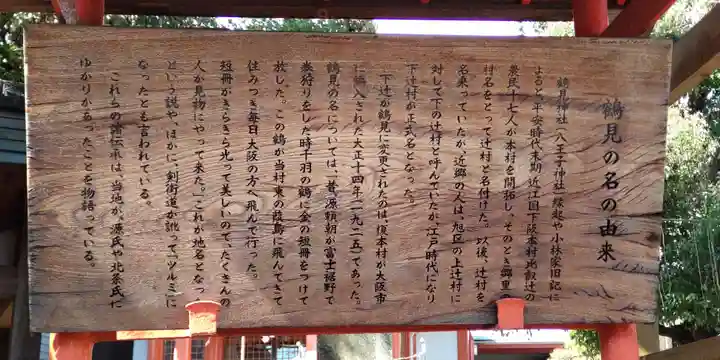 鶴見の名の由来
鶴見神社(八王子神社)縁起や小林家旧記に
よると平安時代末期、近江国下阪本村比叡辻の
農民十七人が本村を開拓し、そのとき郷里の
村名をとって辻村と名付けた。以後、辻村を
名乗っていたが、近郷の人は、旭区の上辻村に
対して下の辻村と呼んでいたが、江戸時代になり
下辻村が正式名となった。
下辻が鶴見に変更されたのは、榎本村が大阪市
に編入された大正十四年(一九二五)であった。
鶴見の名については、昔、源頼朝が富士裾野で
巻狩りをした時千羽の鶴に金の短冊をつけて
放した。この鶴が当村東の葭島に飛んできて
住みつき毎日大阪の方へ飛んで行った。
短冊がきらきら光って美しいので、たくさんの
人が見物にやって来た。」これが地名となっ
たという説や、ほかに、剣街道が訛って、ツルミに
なったとも言われている。
これらの諸伝承は、当地が、源氏や北条氏に
ゆかりがあったことを物語っている。